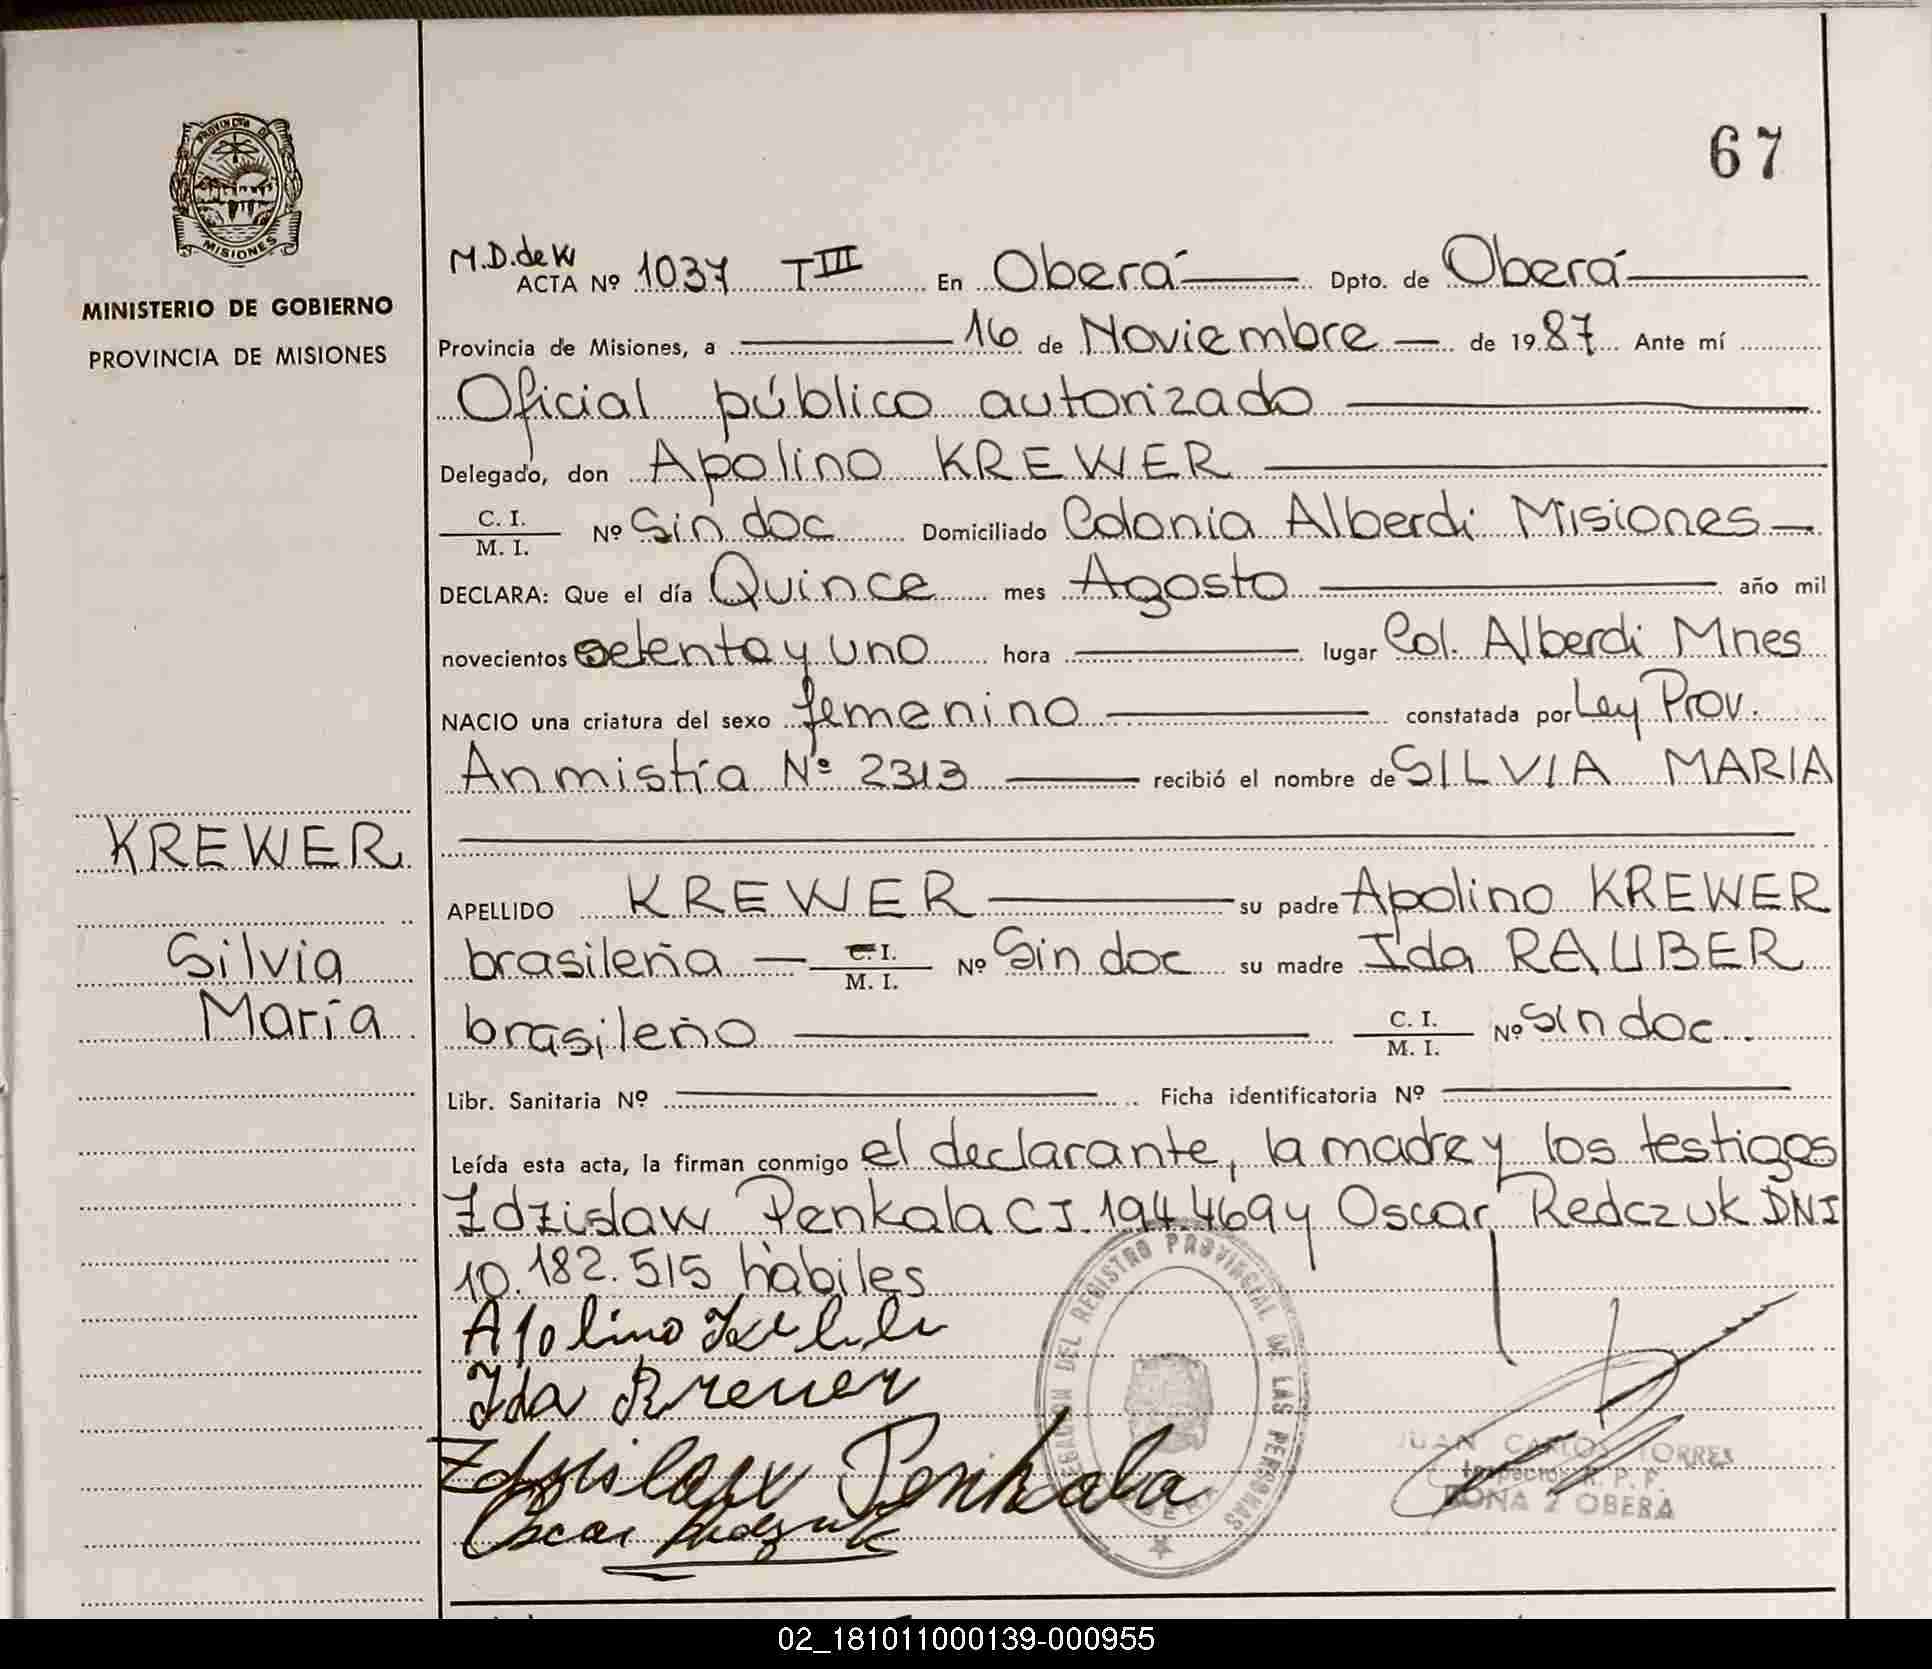 67
PROVINCIA DE
MISIONES
MINISTERIO DE GOBIERNO
PROVINCIA DE MISIONES
KREWER
Silvia
María
M.D.deW
ACTA Nº 1037 TIII En Oberá Dpto. de Oberá
Provincia de Misiones, a 16 de Noviembre de 1987 Ante mí
Oficial público autorizado
Delegado, don Apolino KREWER
C. I.
M. I. Nº Sin doc Domiciliado Colonia Alberdi Misiones
DECLARA: Que el día Quince mes Agosto año mil
novecientos setenta y uno hora lugar Col. Alberdi Mnes
NACIO una criatura del sexo femenino constatada por Ley Prov.
Anmistía Nº 2313 recibió el nombre de SILVIA MARIA
APELLIDO KREWER su padre Apolino KREWER
brasileña C.I.
M. I. Nº Sin doc su madre Ida RAUBER
brasileño C. I.
M. I. Nº sin doc
Libr. Sanitaria Nº Ficha identificatoria Nº
Leída esta acta, la firman conmigo el declarante, la madre y los testigos
Zdzislaw Penkala CI 194.469 y Oscar Redczuk DNI
10.182.515 hábiles
Apolino
Ida Krewer
Zdzislaw Penkala
Oscar Redczuk
DEL REGISTRO PROVINCIAL DE LAS PERSONAS
JUAN CARLOS TORRES
Inspector R. P. P.
ZONA 2 OBERA
02_181011000139-000955